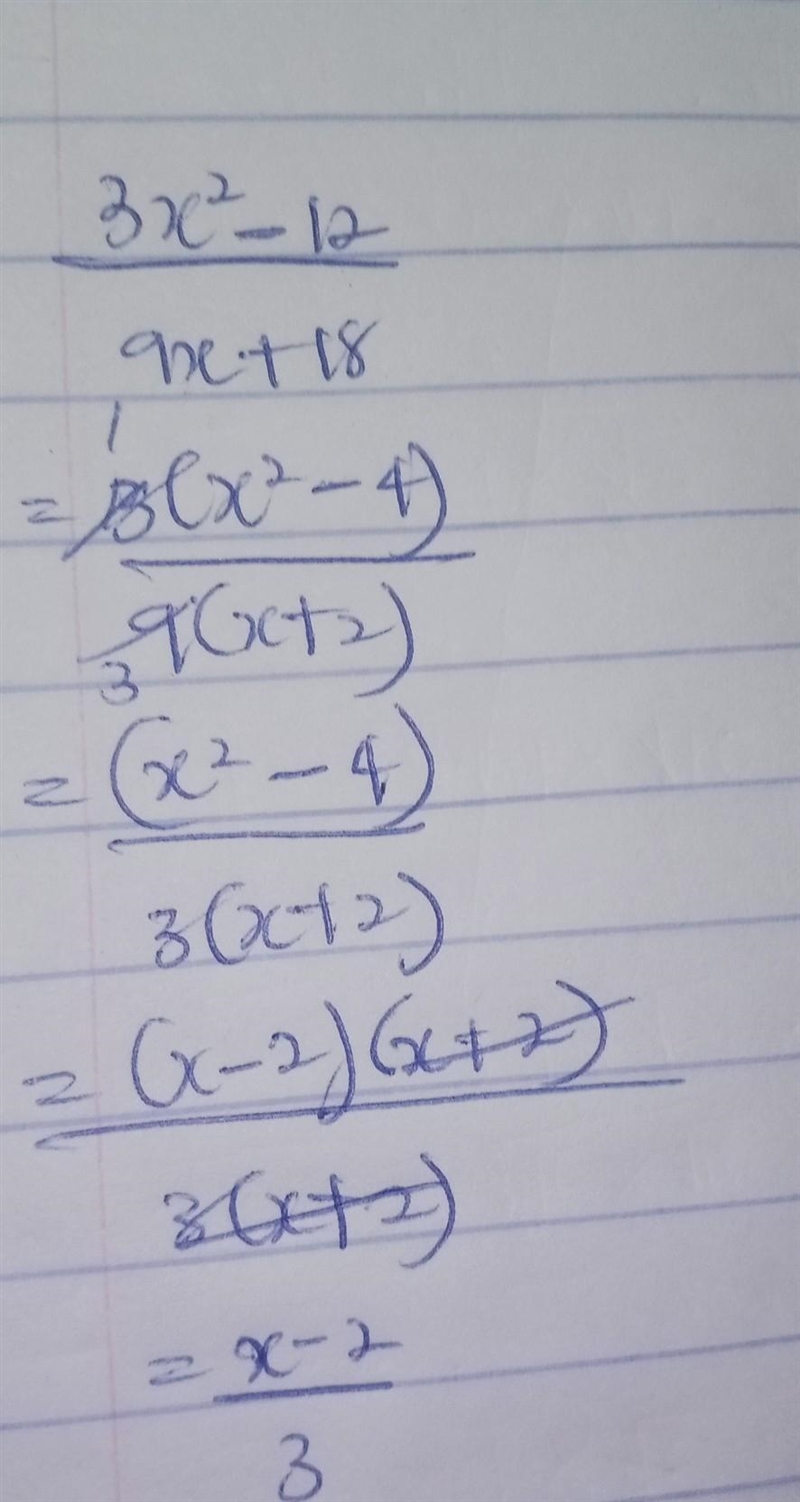 3x² - 12
9x + 18
1
= 3(x² - 4)
9(x+2)
3
= (x² - 4)
3(x+2)
= (x-2)(x+2)
3(x+2)
= x-2
3